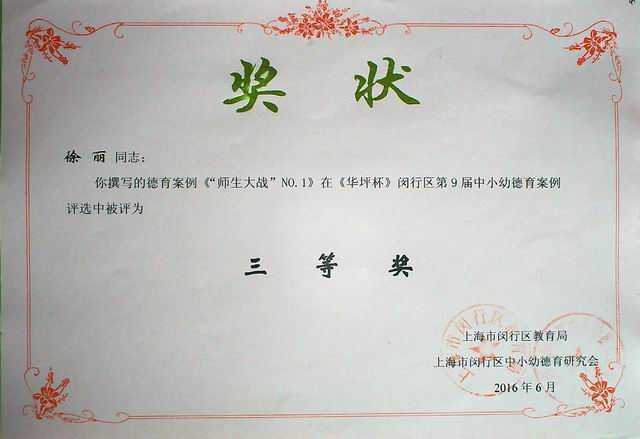 奖 状
徐 丽 同志：
你撰写的德育案例《“师生大战”NO.1》在《华坪杯》闵行区第9届中小幼德育案例
评选中被评为
三 等 奖
上海市闵行区教育局
上海市闵行区中小幼德育研究会
2016年6月